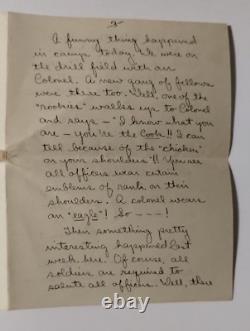 2
A funny thing happened
in camp today. We were on
the drill field with our
Colonel. A new gang of fellows
were there too. Well, one of the
"rookies" walks up to Colonel
and says - "I know what you
are - you're the Cook!! I can
tell because of the "chicken"
on your shoulders"!! You see
all officers wear certain
emblems of rank on their
shoulders. A colonel wears
an "eagle"! So - - - !
Then something pretty
interesting happened last
week here. Of course, all
soldiers are required to
salute all officers. Well, there
ebay